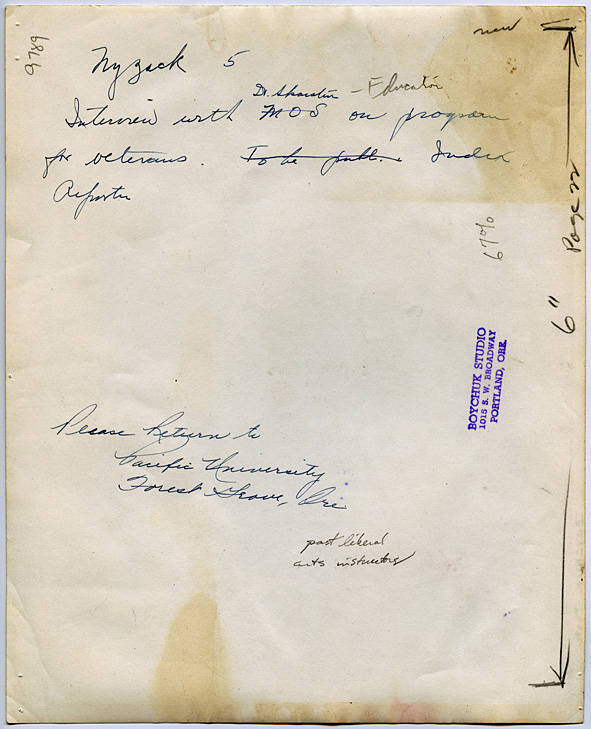 9789
new
5
Dr. - Educator
Interview with MOS on program
for veterans. To be publ. Index
Reporter
Page 22
67%
6"
BOYCHUK STUDIO
1015 S. W. BROADWAY
PORTLAND, ORE
Please Return to
Pacific University
Forest Grove, Ore
past liberal
arts instructors